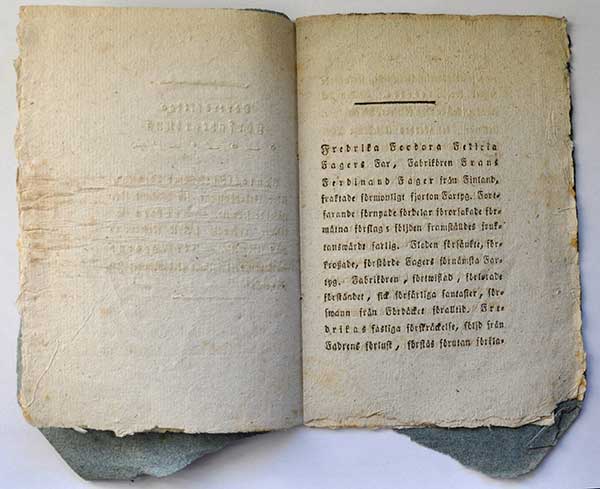 Fredrika Feodora Felicia
Fagers Far, Fabrikören Frans
Ferdinand Fager från Finland,
fraktade förmonligt fjorton Fartyg. Fort-
farande förnyade fördelar förorsakade för-
mätna förslag; följden framställdes fruk-
tanswärdt farlig. Floden försänkte, för-
kroßade, förstörde Fagers förnämsta Far-
tyg. Fabrikören, förtwiflad, förlorade
förståndet, fick förfärliga fantasier, för-
swann från Fördäcket föralltid. Fre-
drikas fasliga förskräckelse, följd från
Fadrens förlust, förstås förutan förkla-